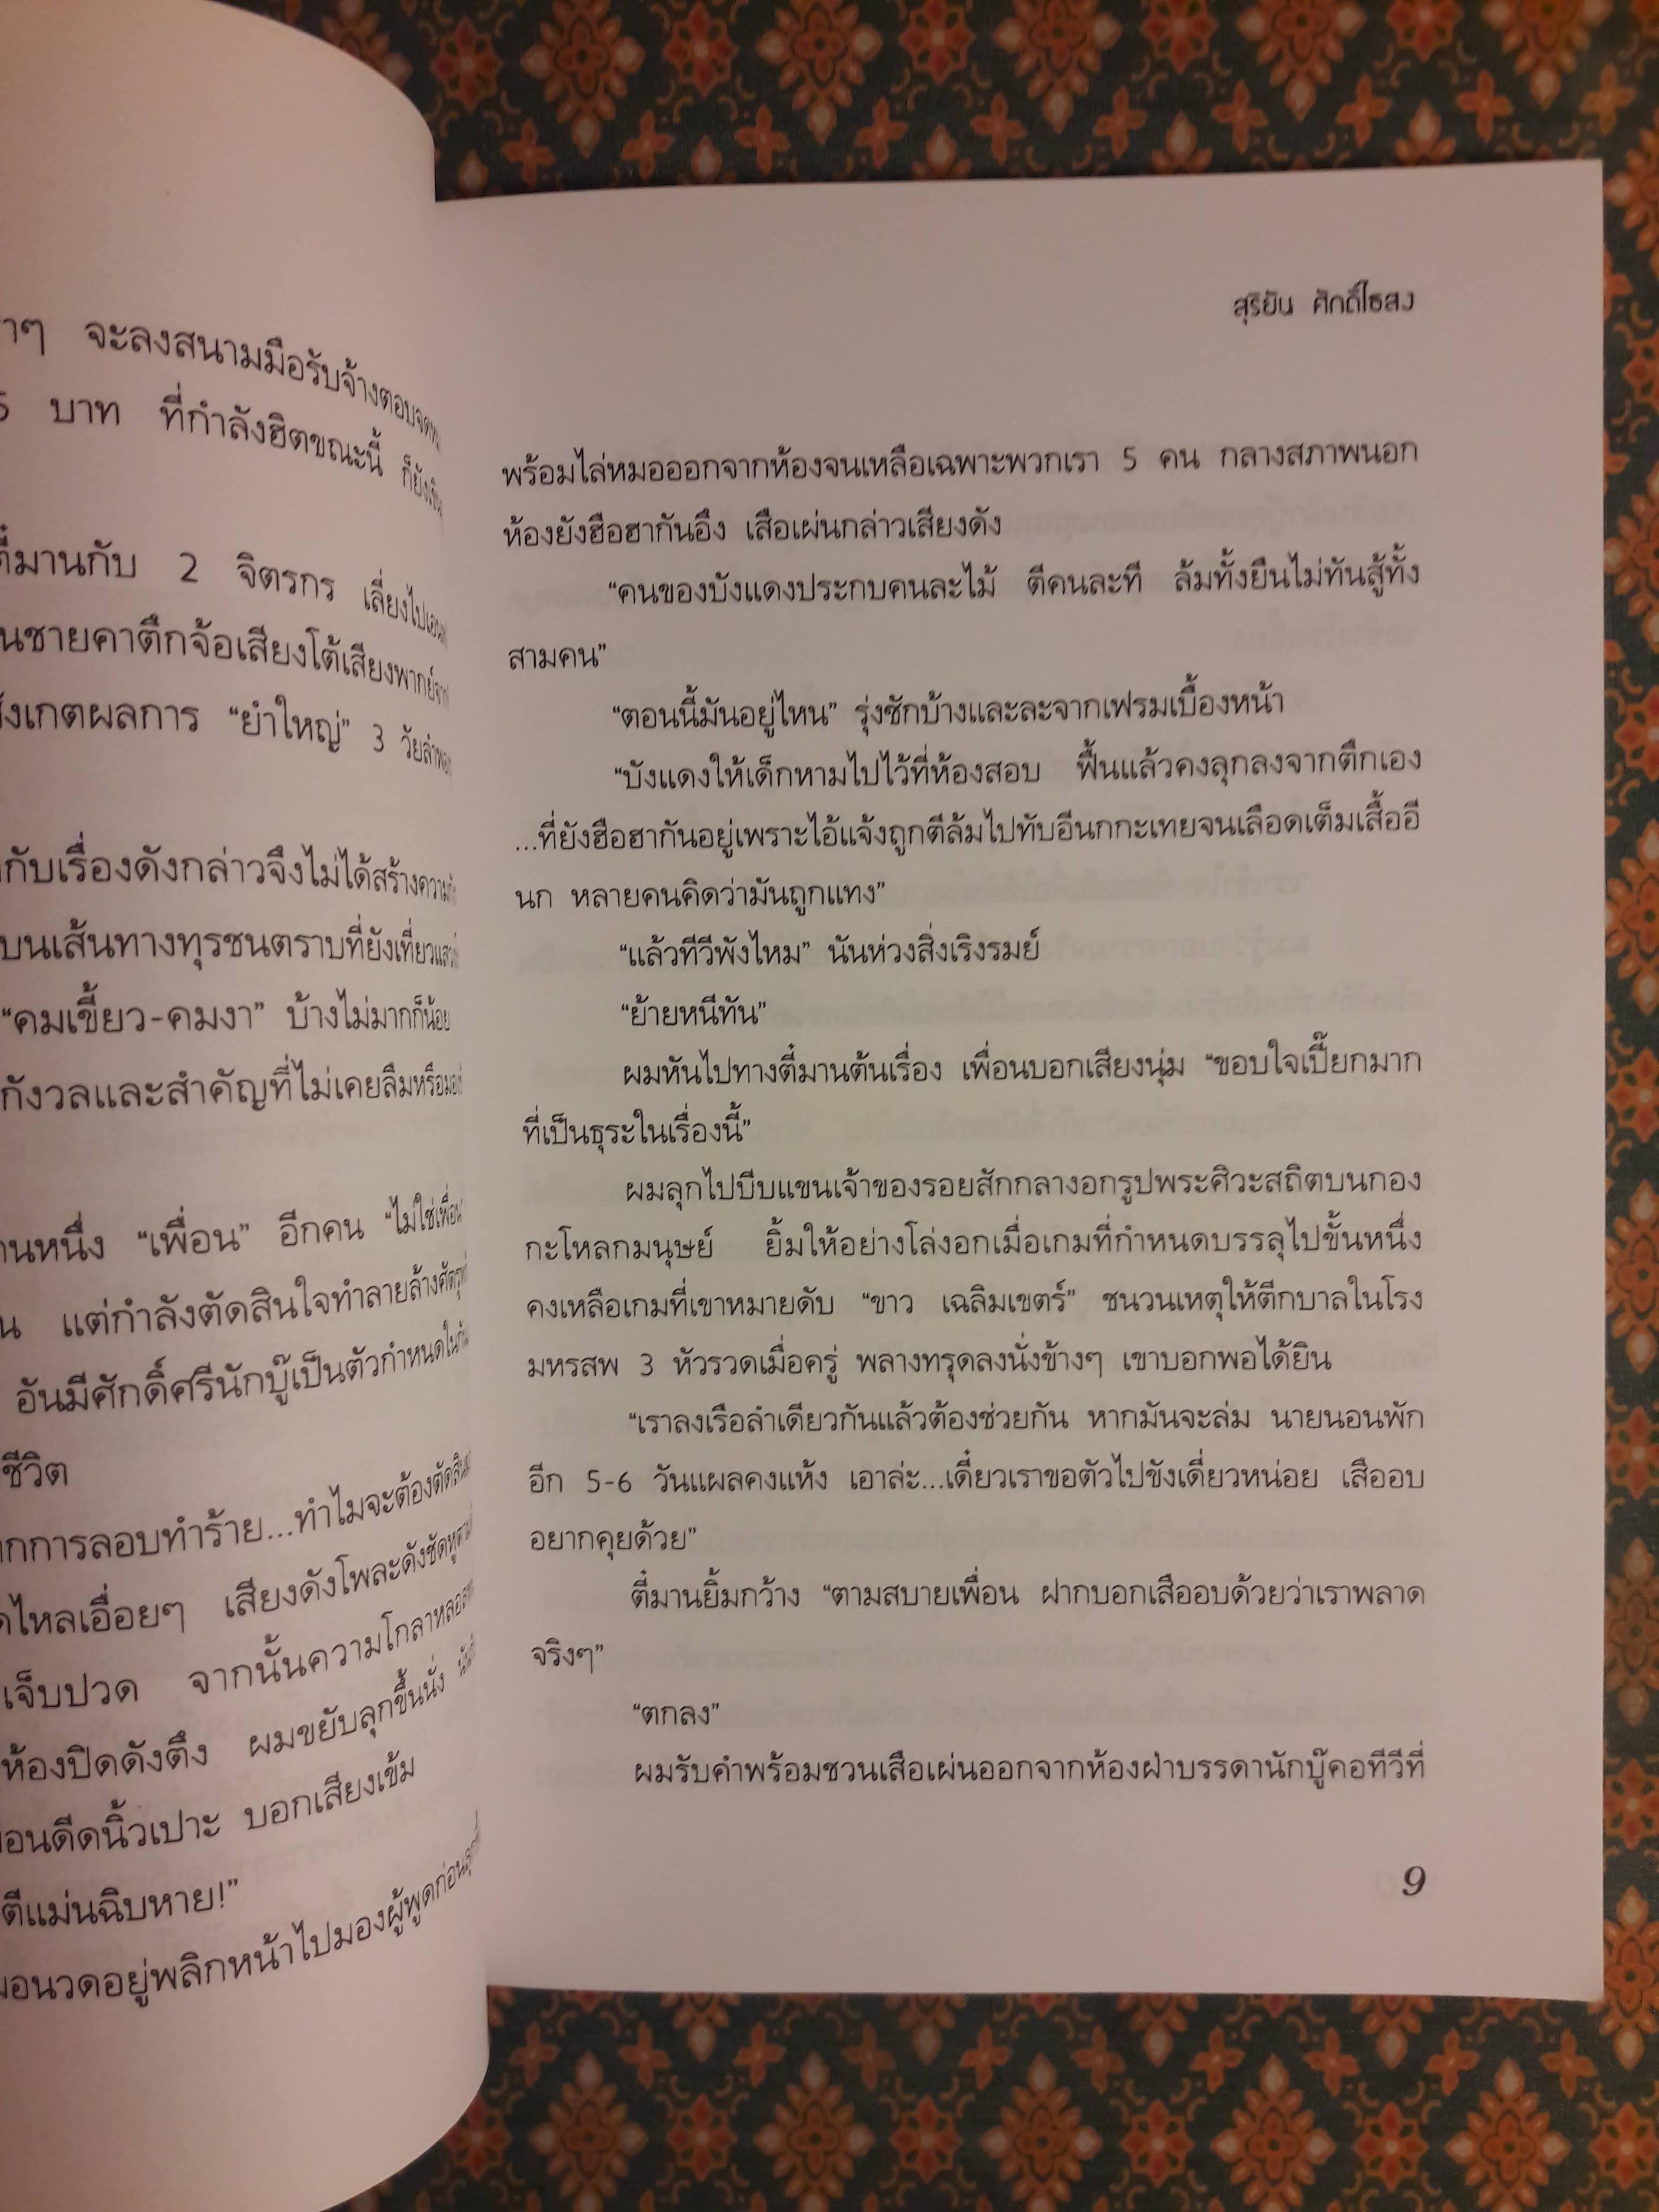 จะลงสนามมือรับจ้างตอบจดหมาย
บาท ที่กำลังฮิตขณะนี้ ก็ยังเขิน
2 จิตรกร เลี่ยงไปเอนหลัง
ชายคาตึกจ้อเสียงโต้เสียงพากย์จาก
ผลการ “ยำใหญ่” 3 วัยลำพอง
กับเรื่องดังกล่าวจึงไม่ได้สร้าง
บนเส้นทางทุรชนตราบที่ยังเที่ยว
“คมเขี้ยว-คมงา” บ้างไม่มากก็น้อย
กังวลและสำคัญที่ไม่เคยลืมหรือ
หนึ่ง “เพื่อน” อีกคน “ไม่ใช่เพื่อน”
แต่กำลังตัดสินใจทำลายล้างศัตรู
อันมีศักดิ์ศรีนักบู๊เป็นตัวกำหนด
ชีวิต
การลอบทำร้าย...ทำไมจะต้อง
ไหลเอื่อยๆ เสียงดังโพละดังชัด
เจ็บปวด จากนั้นความโกลาหล
ห้องปิดดังตึง ผมขยับลุกขึ้นนั่ง
ดีดนิ้วเปาะ บอกเสียงเข้ม
ตีแม่นฉิบหาย!”
นวดอยู่พลิกหน้าไปมองผู้พูดก่อน
สุริยัน ศักดิ์ไธสง
พร้อมไล่หมอออกจากห้องจนเหลือเฉพาะพวกเรา 5 คน กลางสภาพนอก
ห้องยังฮือฮากันอึง เสือเผ่นกล่าวเสียงดัง
“คนของบังแดงประกบคนละไม้ ตีคนละที ล้มทั้งยืนไม่ทันสู้ทั้ง
สามคน”
“ตอนนี้มันอยู่ไหน” รุ่งซักบ้างและละจากเฟรมเบื้องหน้า
“บังแดงให้เด็กหามไปไว้ที่ห้องสอบ ฟื้นแล้วคงลุกลงจากตึกเอง
...ที่ยังฮือฮากันอยู่เพราะไอ้แจ้งถูกตีล้มไปทับอีนกกะเทยจนเลือดเต็มเสื้ออี
นก หลายคนคิดว่ามันถูกแทง”
“แล้วทีวีพังไหม” นันห่วงสิ่งเริงรมย์
“ย้ายหนีทัน”
ผมหันไปทางตี๋มานต้นเรื่อง เพื่อนบอกเสียงนุ่ม “ขอบใจเปี๊ยกมาก
ที่เป็นธุระในเรื่องนี้”
ผมลุกไปบีบแขนเจ้าของรอยสักกลางอกรูปพระศิวะสถิตบนกอง
กะโหลกมนุษย์ ยิ้มให้อย่างโล่งอกเมื่อเกมที่กำหนดบรรลุไปขั้นหนึ่ง
คงเหลือเกมที่เขาหมายดับ “ขาว เฉลิมเขตร์” ชนวนเหตุให้ตีกบาลในโรง
มหรสพ 3 หัวรวดเมื่อครู่ พลางทรุดลงนั่งข้างๆ เขาบอกพอได้ยิน
“เราลงเรือลำเดียวกันแล้วต้องช่วยกัน หากมันจะล่ม นายนอนพัก
อีก 5-6 วันแผลคงแห้ง เอาล่ะ...เดี๋ยวเราขอตัวไปขังเดี่ยวหน่อย เสืออบ
อยากคุยด้วย”
ตี๋มานยิ้มกว้าง “ตามสบายเพื่อน ฝากบอกเสืออบด้วยว่าเราพลาด
จริงๆ”
“ตกลง”
ผมรับคำพร้อมชวนเสือเผ่นออกจากห้องฝ่าบรรดานักบู๊คอทีวีที่
9